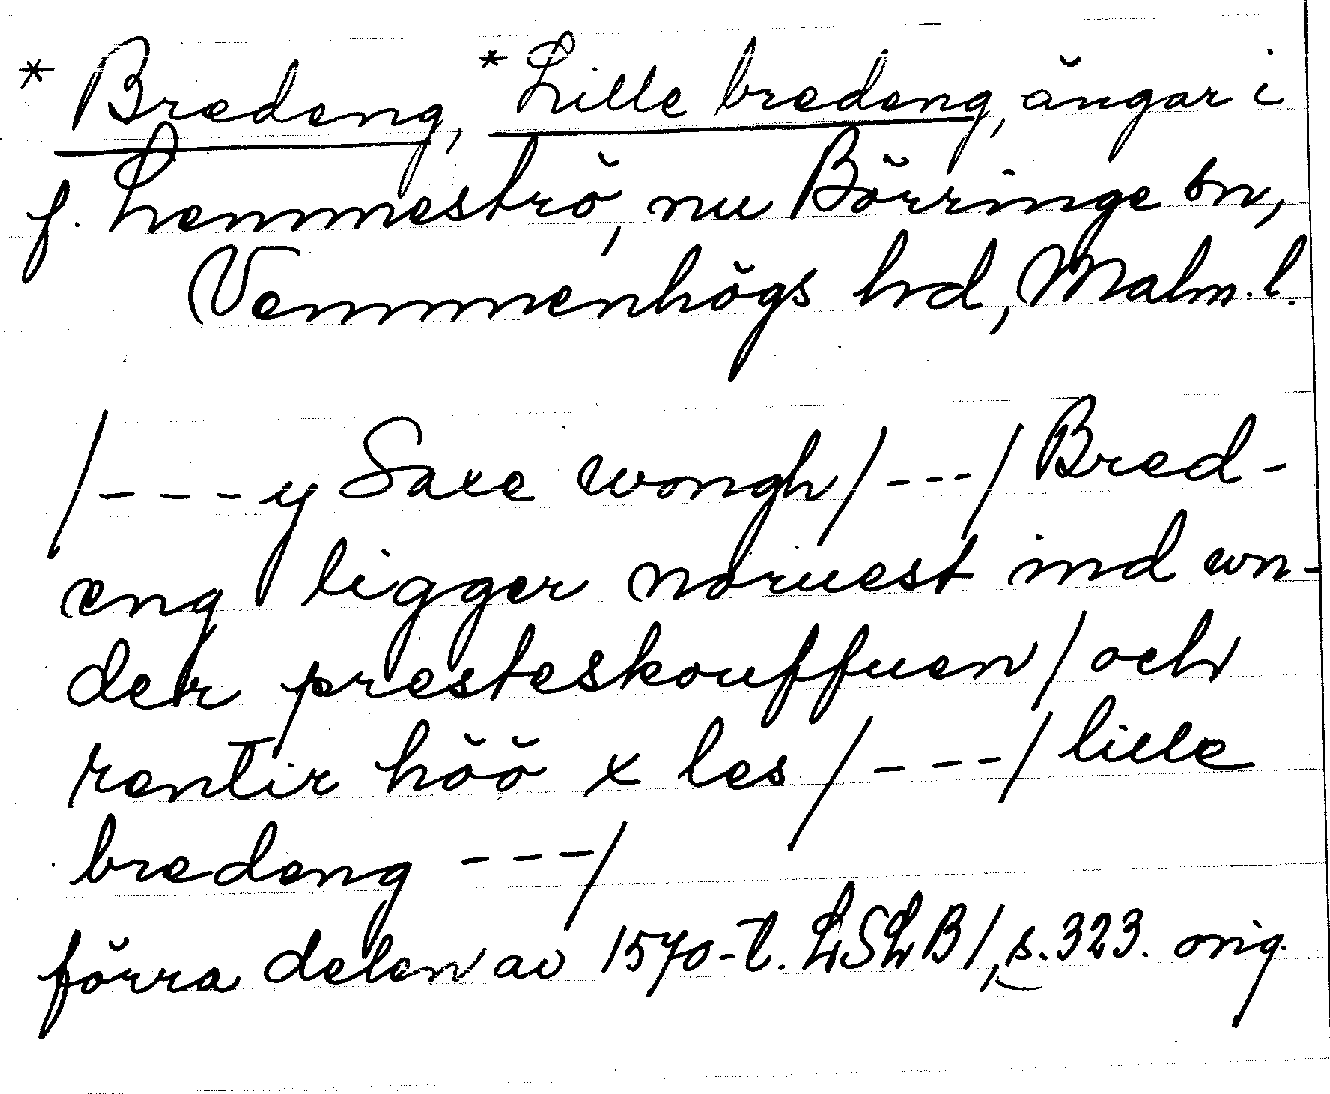 * Bredeng, * Lille bredeng, ängar i
f. Lemmeströ, nu Börringe sn,
Vemmenhögs hd, Malm. l.
/---y Saxe wongh/---/ Bred-
eng ligger noruest ind wn-
der presteskouffuen/och
rentir höö x les/---/lille
bredeng ---/
förra delen av 1570-t. LSLB1, s. 323. orig.